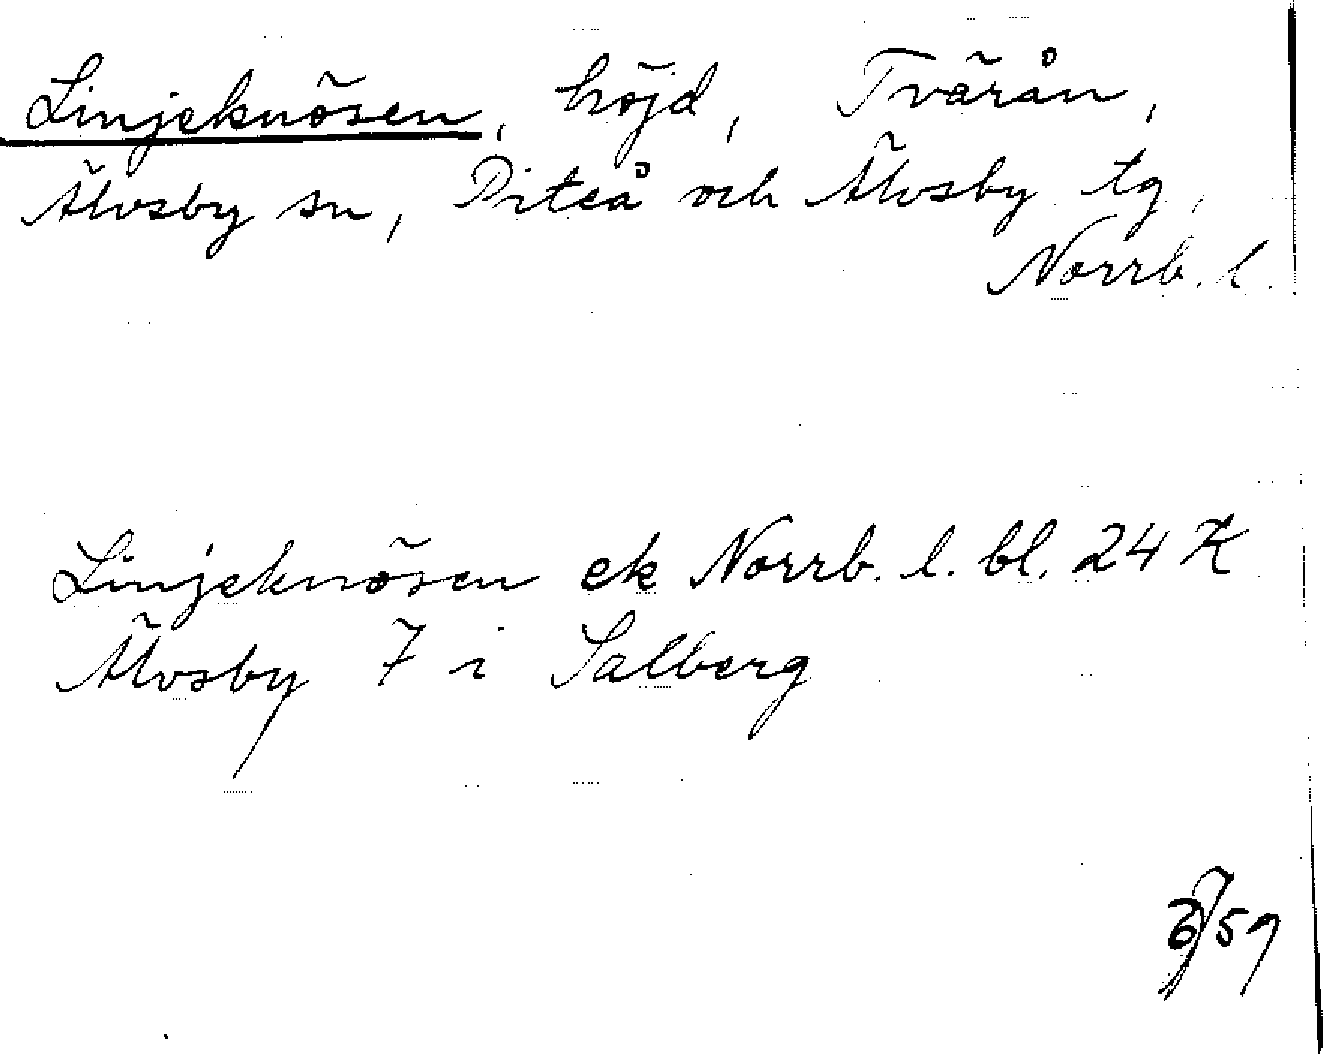 Linjeknösen, höjd, Tvärån,
Älvsby sn, Piteå och Älvsby tg,
Norrb. l.
Linjeknösen ek Norrb. l. bl. 24 K
Älvsby 7 i Salberg